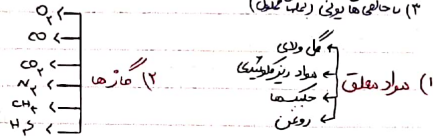 ۳) ناخالصی ها یونی (بصورت محلول)
۱) مواد معلق
گل و لای
مواد ریز کلوئیدی
جلبک ها
روغن
۲) گازها
O₂
CO
CO₂
N₂
CH₄
H₂S